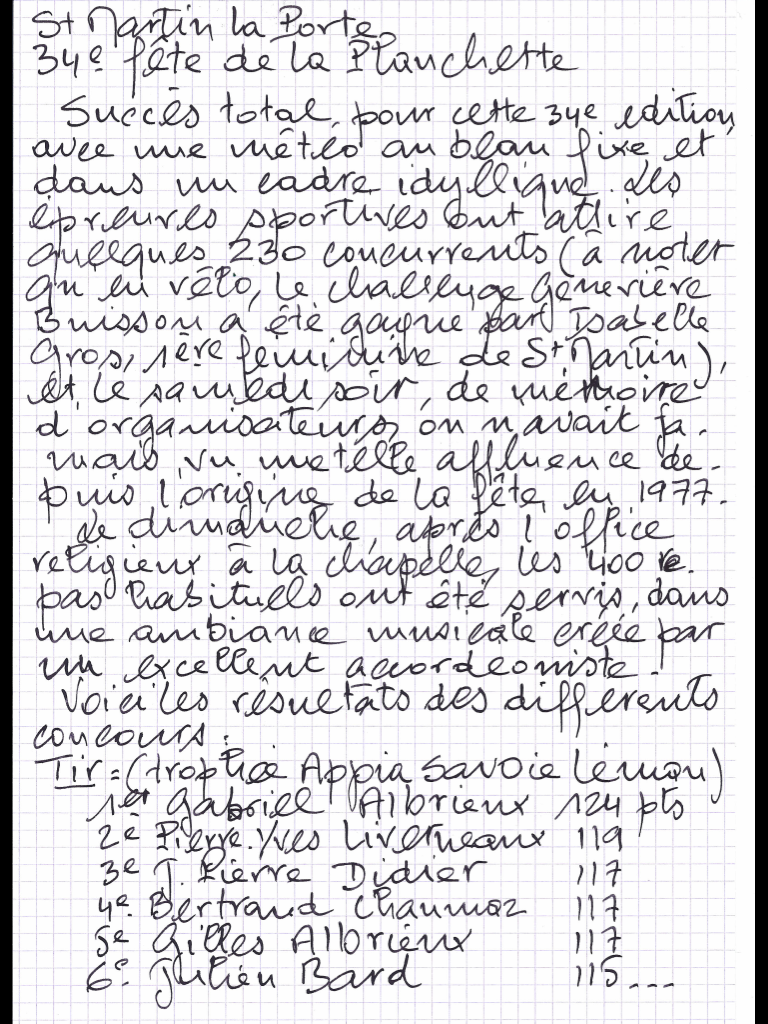 St Martin la Porte.
34e fête de la Planchette
Succès total, pour cette 34e edition,
avec une météo au beau fixe et
dans un cadre idyllique. Les
épreuves sportives ont attiré
quelques 230 concurrents (à noter
qu'en vélo, le challenge Geneviève
Buisson a été gagné par Isabelle
Gros, 1ère féminine de St Martin),
et, le samedi soir, de mémoire
d'organisateurs, on n'avait ja-
mais vu une telle affluence de-
puis l'origine de la fête, en 1977.
Le dimanche, après l'office
religieux à la chapelle, les 400 re-
pas habituels ont été servis, dans
une ambiance musicale créée par
un excellent accordéoniste.
Voici les résultats des différents
concours:
Tir: (trophée Appia Savoie Léman)
1er Gabriel Albrieux 124 pts
2e Pierre-Yves Liverneaux 119
3e J. Pierre Didier 117
4e Bertrand Chaumaz 117
5e Gilles Albrieux 117
6e Julien Bard 115...